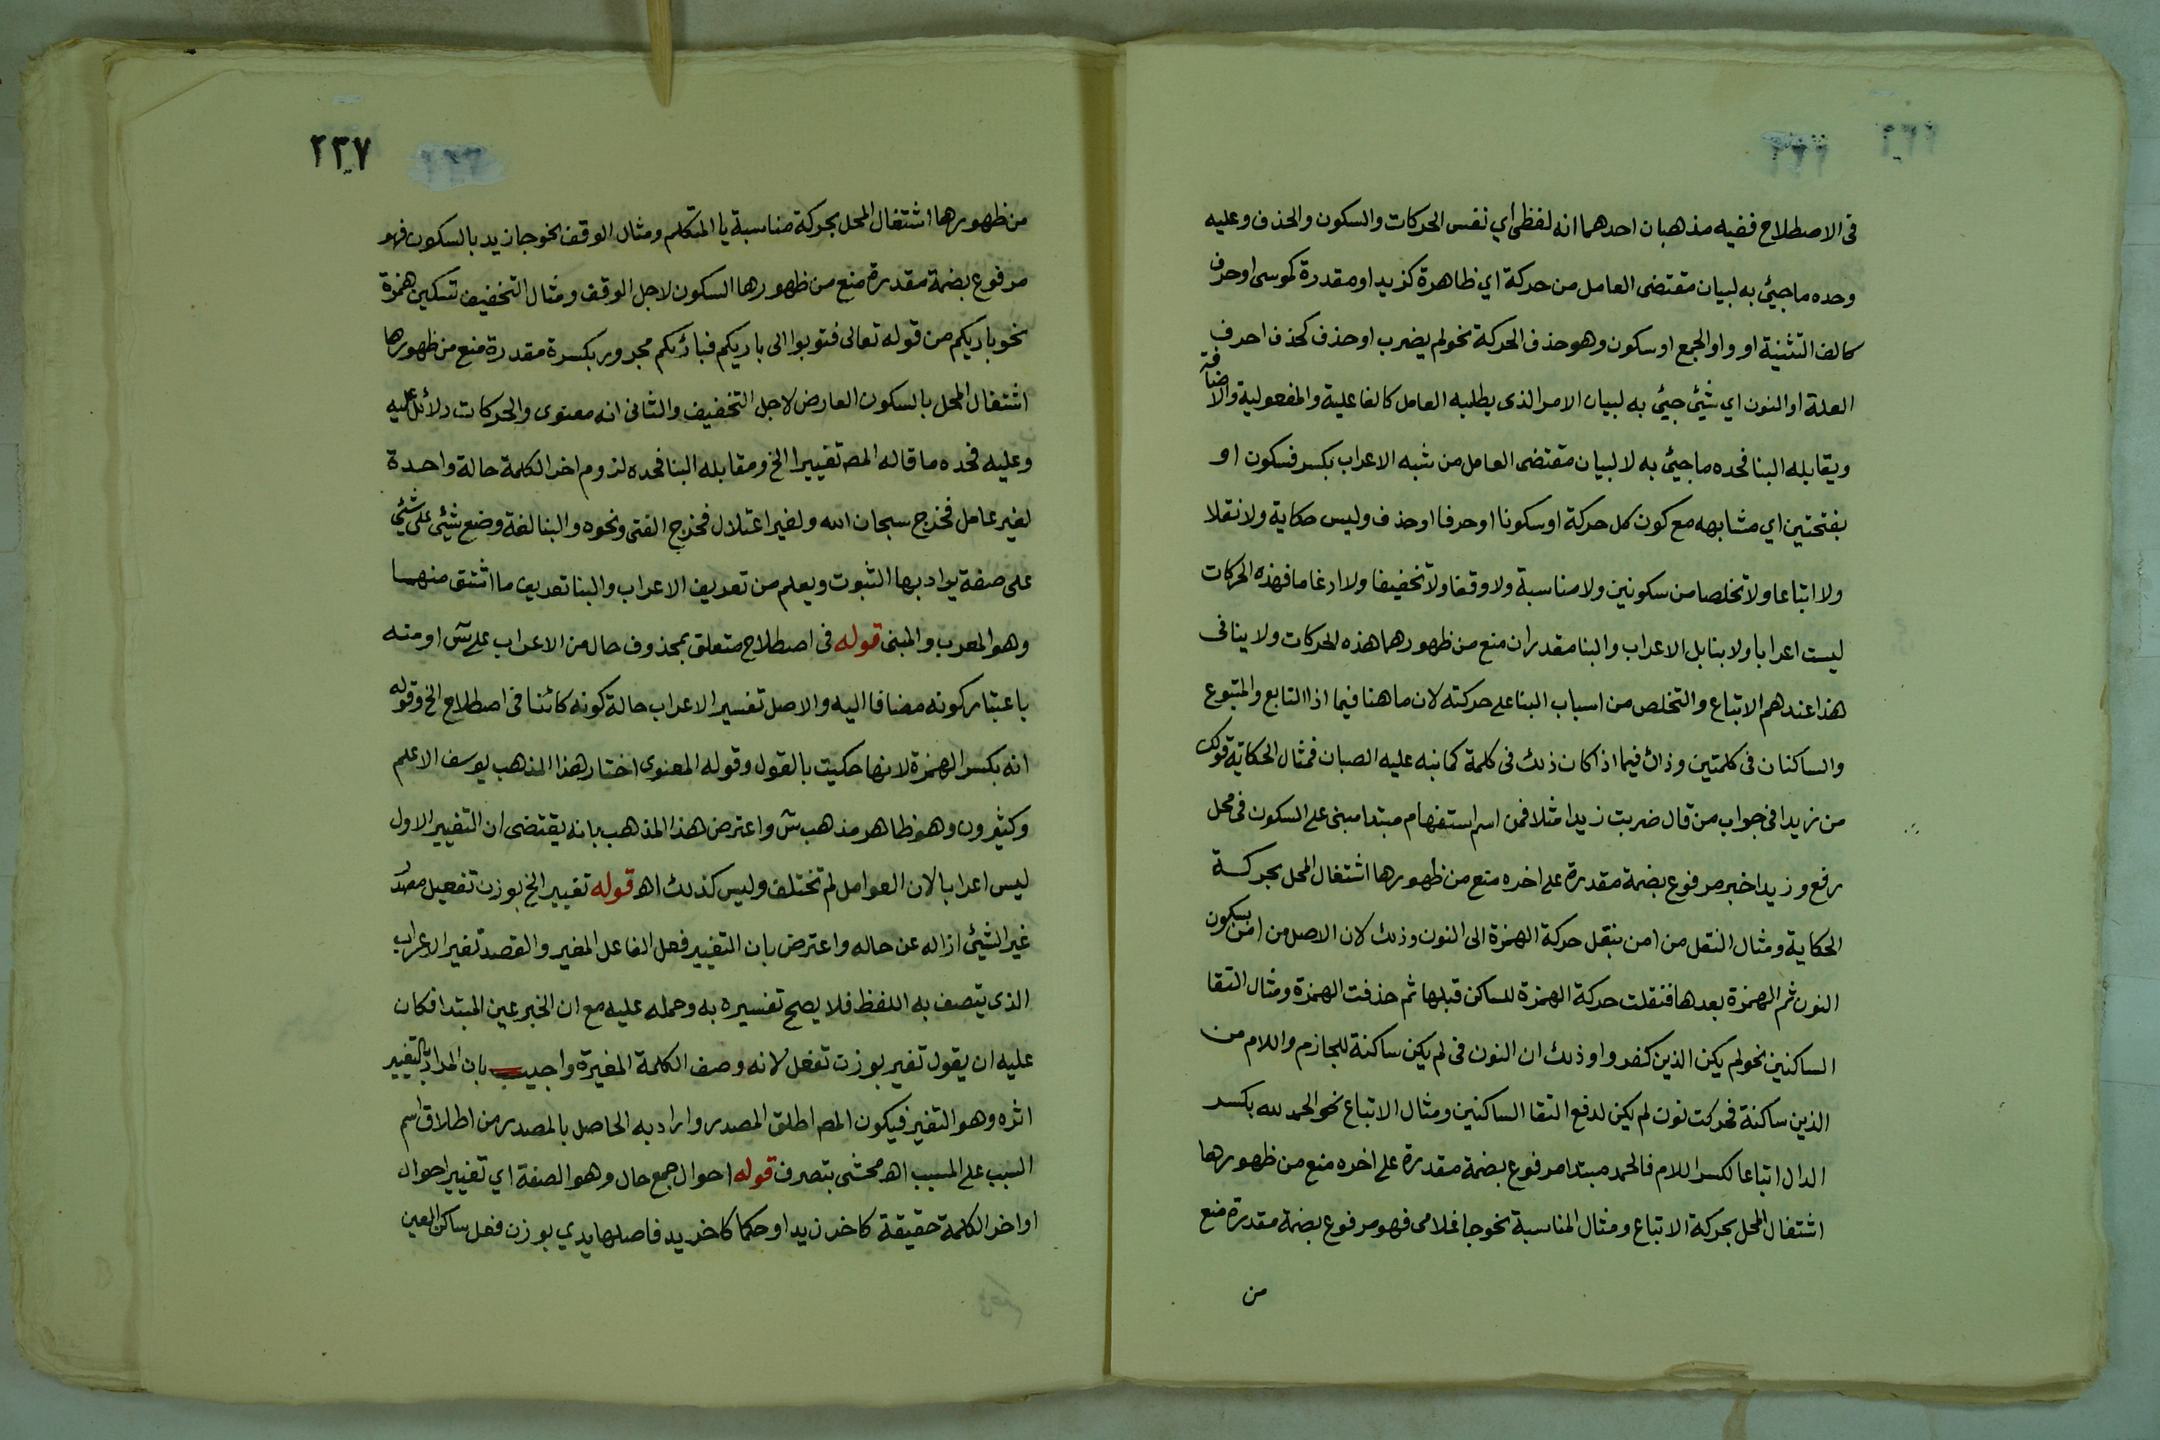 فى الاصطلاح ففيه مذهبان احدهما انه لفظى اي نفس الحركات والسكون والحذف وعليه
وحده ما جيئ به لبيان مقتضى العامل من حركة اي ظاهرة كزيد او مقدرة كموسى او حرف
كالف التثنية او واو الجمع او سكون وهو حذف الحركة نحو لم يضرب او حذف كحذف احرف
العلة او النون اي شيئ جيئ به لبيان الامر الذى يطلبه العامل كالفاعلية والمفعولية والاضافة
ويقابله البنا فحده ما جيئ به لا لبيان مقتضى العامل من شبه الاعراب بكسر فسكون او
بفتحتين اي مشابهه مع كون كل حركة او سكونا او حرفا او حذف وليس حكاية ولا نقلا
ولا اتباعا ولا تخلصا من سكونين ولا مناسبة ولا وقفا ولا تخفيفا ولا ادغاما فهذه الحركات
ليست اعرابا ولا بنا بل الاعراب والبنا مقدران منع من ظهورهما هذه الحركات ولا ينافى
هذا عندهم الاتباع والتخلص من اسباب البنا على حركته لان ما هنا فيما اذا التابع والمتبوع
والساكنان فى كلمتين وذاك فيما اذا كان ذلك فى كلمة كما نبه عليه الصبان فمثال الحكاية قولك
من زيدا فى جواب من قال ضربت زيدا مثلا فمن اسم استفهام مبتدا مبنى على السكون فى محل
رفع وزيدا خبر مرفوع بضمة مقدرة على اخره منع من ظهورها اشتغال المحل بحركة
الحكاية ومثال النقل من امن بنقل حركة الهمزة الى النون وذلك لان الاصل من امن بسكون
النون ثم الهمزة بعدها فنقلت حركة الهمزة للساكن قبلها ثم حذفت الهمزة ومثال التقا
الساكنين نحو لم يكن الذين كفروا وذلك ان النون فى لم يكن ساكنة للجازم واللام من
الذين ساكنة فحركت نون لم يكن لدفع التقا الساكنين ومثال الاتباع نحو الحمد لله بكسر
الدال اتباعا لكسر اللام فالحمد مبتدا مرفوع بضمة مقدرة على اخره منع من ظهورها
اشتغال المحل بحركة الاتباع ومثال المناسبة نحو جا غلامى فهو مرفوع بضمة مقدرة منع
من
٢٣٧
من ظهورها اشتغال المحل بحركة مناسبة يا المتكلم ومثال الوقف نحو جا زيد بالسكون فهو
مرفوع بضمة مقدرة منع من ظهورها السكون لاجل الوقف ومثال التخفيف تسكين همزة
نحو باريكم من قوله تعالى فتوبوا الى باريكم فبارئكم مجرور بكسرة مقدرة منع من ظهورها
اشتغال المحل بالسكون العارض لاجل التخفيف والثانى انه معنوى والحركات دلائل عليه
وعليه فحده ما قاله المصـ تغيير الخ ومقابله البنا فحده لزوم اخر الكلمة حالة واحدة
لغير عامل فخرج سبحان الله ولغير اعتلال فخرج الفتى ونحوه والبنا لغة وضع شيئ على شيئ
على صفة يراد بها الثبوت ويعلم من تعريف الاعراب والبنا تعريف ما اشتق منهما
وهو المعرب والمبنى قوله فى اصطلاح متعلق بمحذوف حال من الاعراب على س او منه
باعتبار كونه مضافا اليه والاصل تفسير الاعراب حالة كونه كائنا فى اصطلاح الخ وقوله
انه بكسر الهمزة لانها حكيت بالقول وقوله المعنوى اختار هذا المذهب يوسف الاعلم
وكثيرون وهو ظاهر مذهب س واعترض هذا المذهب بانه يقتضى ان التغيير الاول
ليس اعرابا لان العوامل لم تختلف وليس كذلك اهـ قوله تغيير الخ بوزن تفعيل مصدر
غير الشيئ ازاله عن حاله واعترض بان التغيير فعل الفاعل المغير والقصد تغير الاعراب
الذى يتصف به اللفظ فلا يصح تفسيره به وحمله عليه مع ان الخبر عين المبتدا فكان
عليه ان يقول تغير بوزن تفعل لانه وصف الكلمة المغيرة واجيب بان المراد بالتغيير
اثره وهو التغير فيكون المصـ اطلق المصدر واراد به الحاصل بالمصدر من اطلاق اسم
السبب على المسبب اهـ محشى بتصرف قوله احوال جمع حال وهو الصفة اي تغيير احوال
اواخر الكلمة حقيقة كاخر زيد او حكما كاخر يد فاصلها يدي بوزن فعل ساكن العين